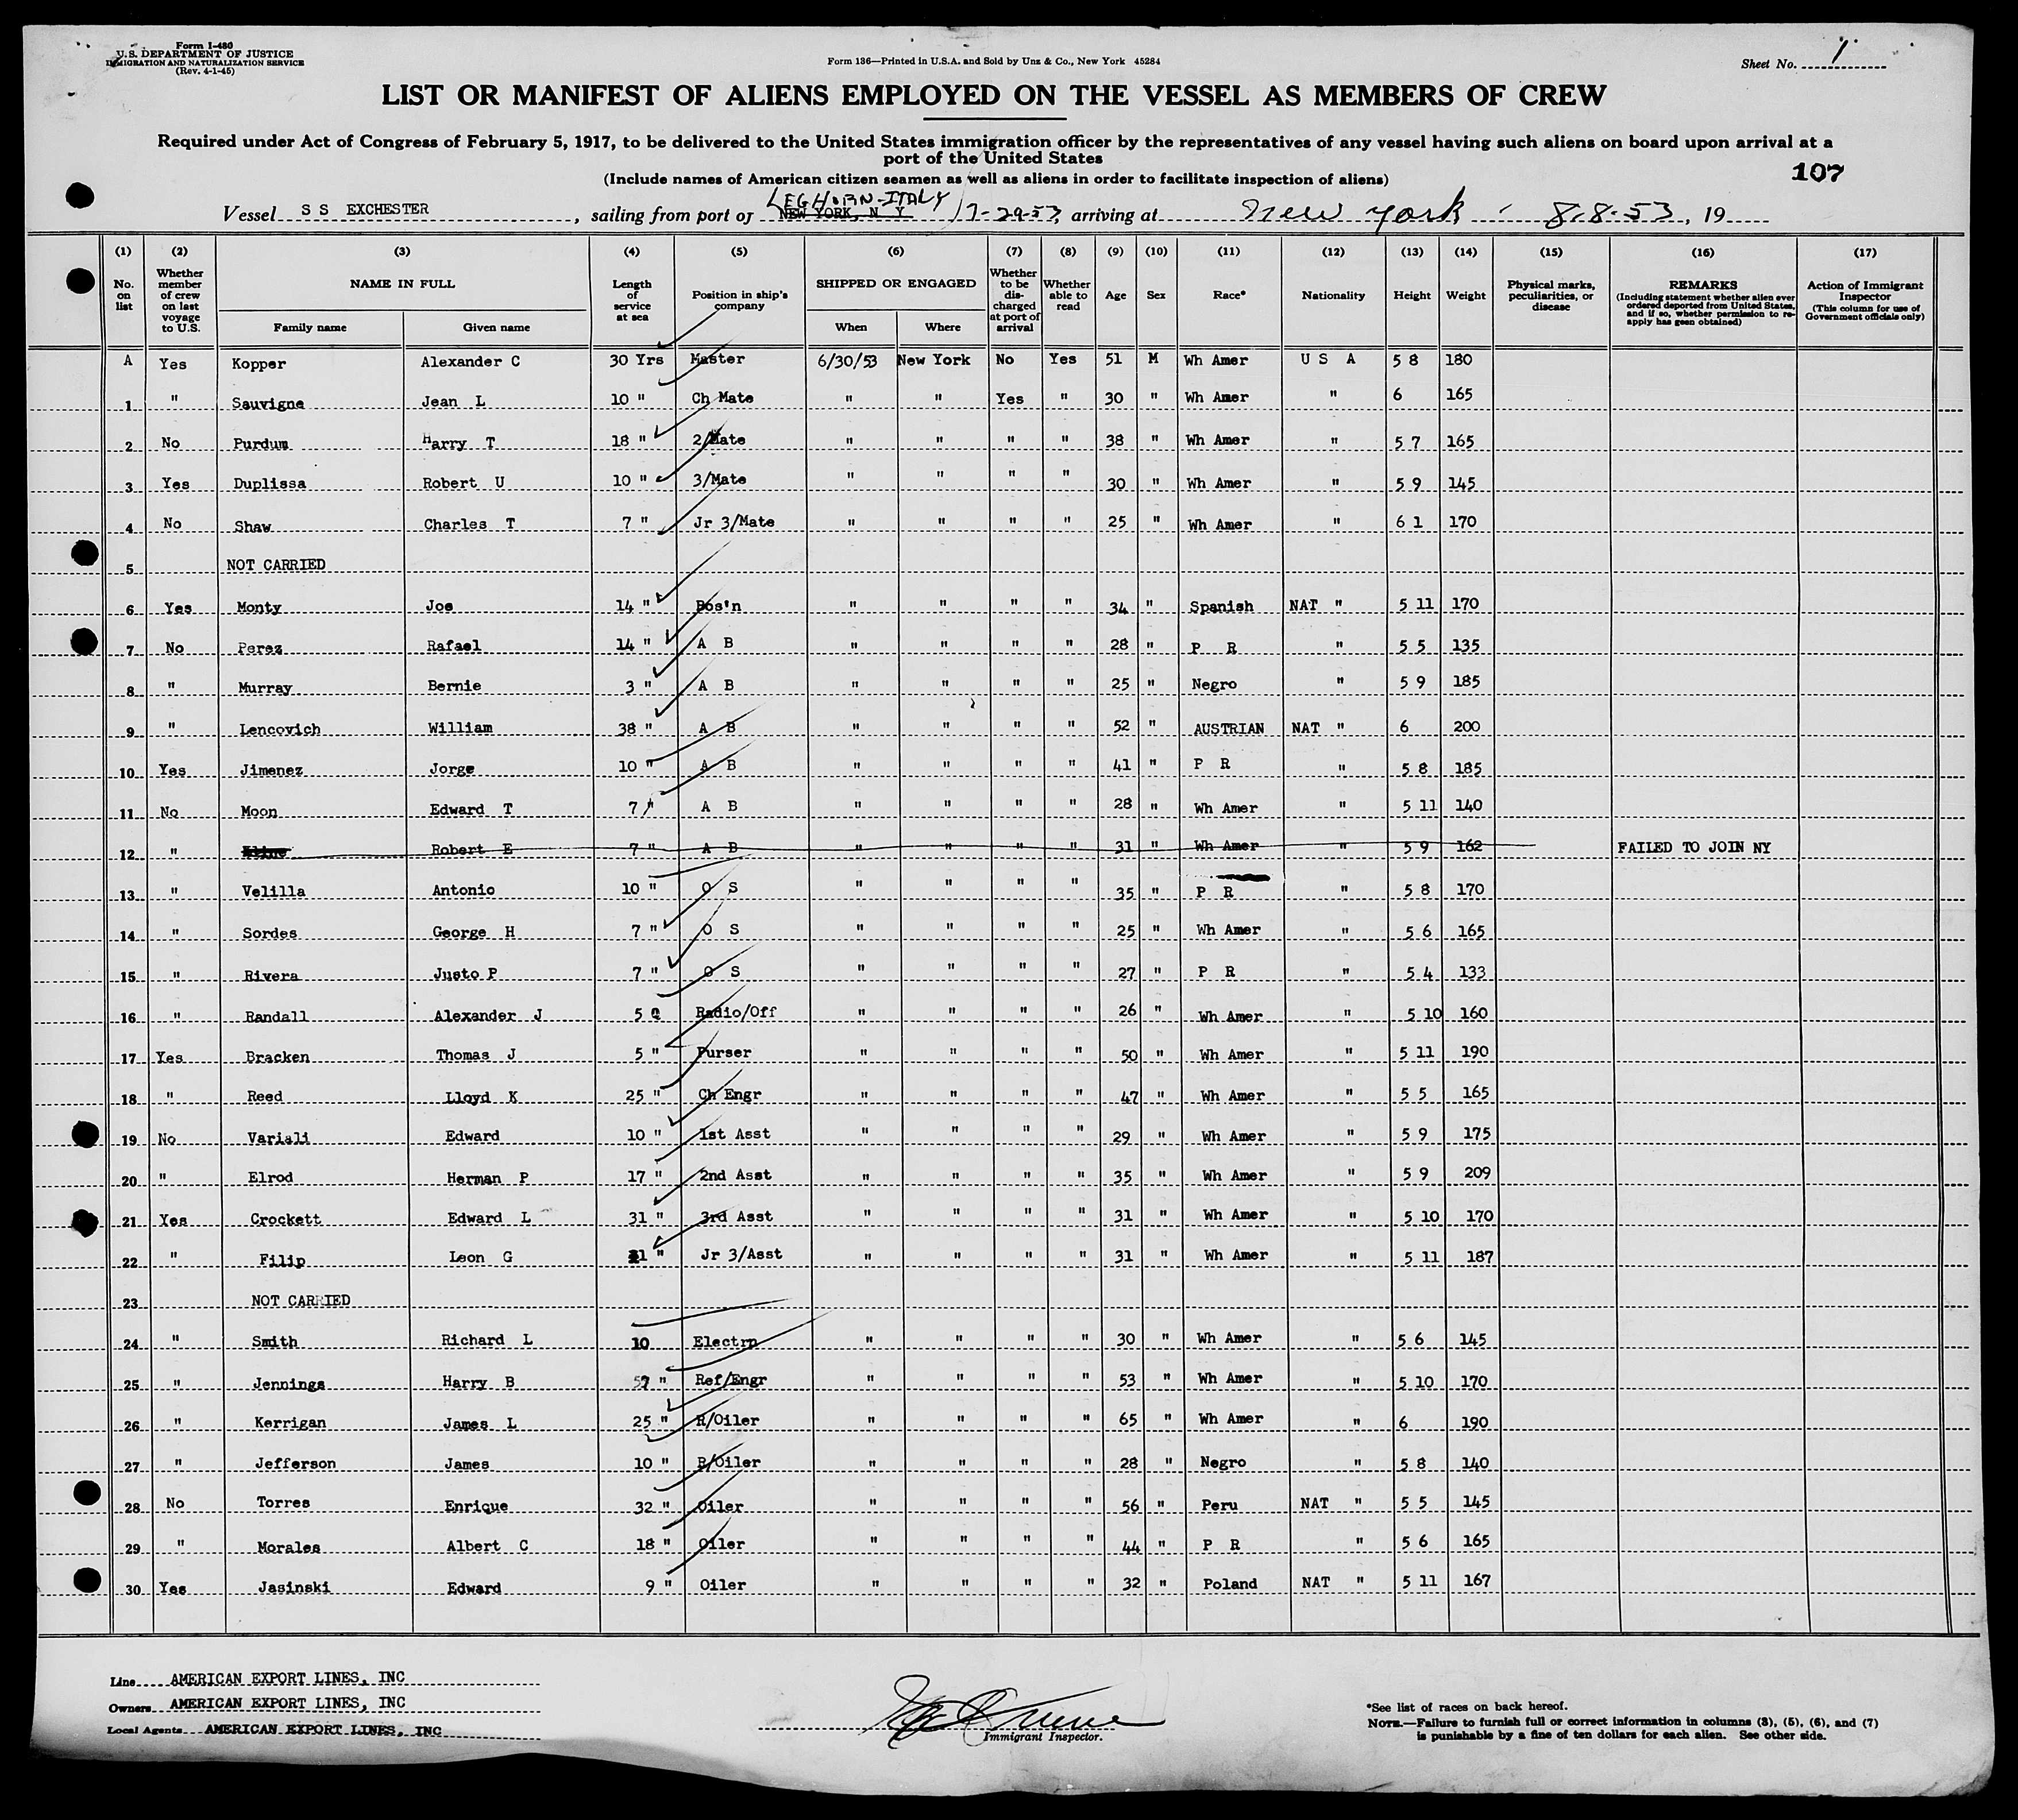 Form I-480
U.S. DEPARTMENT OF JUSTICE
IMMIGRATION AND NATURALIZATION SERVICE
(Rev. 4-1-45)
Form 136—Printed in U.S.A. and Sold by Unz & Co., New York 45284
Sheet No. 1
LIST OR MANIFEST OF ALIENS EMPLOYED ON THE VESSEL AS MEMBERS OF CREW
Required under Act of Congress of February 5, 1917, to be delivered to the United States immigration officer by the representatives of any vessel having such aliens on board upon arrival at a
port of the United States
(Include names of American citizen seamen as well as aliens in order to facilitate inspection of aliens)
107
LEGHORN-ITALY
Vessel S S EXCHESTER, sailing from port of NEW YORK, N Y 7-29-53, arriving at New York 8-8-53, 19
(1) (2) (3) (4) (5) (6) (7) (8) (9) (10) (11) (12) (13) (14) (15) (16) (17)
No. on list Whether member of crew on last voyage to U.S. NAME IN FULL Family name Given name Length of service at sea Position in ship's company SHIPPED OR ENGAGED When Where Whether to be discharged at port of arrival Whether able to read Age Sex Race* Nationality Height Weight Physical marks, peculiarities, or disease REMARKS (Including statement whether alien ever ordered deported from United States, and if so, whether permission to re-apply has been obtained) Action of Immigrant Inspector (This column for use of Government officials only)
A Yes Kopper Alexander C 30 Yrs Master 6/30/53 New York No Yes 51 M Wh Amer U S A 5 8 180
1 " Sauvigne Jean L 10 " Ch Mate " " Yes " 30 " Wh Amer " 6 165
2 No Purdum Harry T 18 " 2/Mate " " " " 38 " Wh Amer " 5 7 165
3 Yes Duplissa Robert U 10 " 3/Mate " " " " 30 " Wh Amer " 5 9 145
4 No Shaw Charles T 7 " Jr 3/Mate " " " " 25 " Wh Amer " 6 1 170
5 NOT CARRIED
6 Yes Monty Joe 14 " Bos'n " " " " 34 " Spanish NAT " 5 11 170
7 No Perez Rafael 14 " A B " " " " 28 " P R " 5 5 135
8 " Murray Bernie 3 " A B " " " " 25 " Negro " 5 9 185
9 " Lencovich William 38 " A B " " " " 52 " AUSTRIAN NAT " 6 200
10 Yes Jimenez Jorge 10 " A B " " " " 41 " P R " 5 8 185
11 No Moon Edward T 7 " A B " " " " 28 " Wh Amer " 5 11 140
12 " Robert E 7 " A B " " " " 31 " Wh Amer " 5 9 162 FAILED TO JOIN NY
13 " Velilla Antonio 10 " O S " " " " 35 " P R " 5 8 170
14 " Sordes George H 7 " O S " " " " 25 " Wh Amer " 5 6 165
15 " Rivera Justo P 7 " O S " " " " 27 " P R " 5 4 133
16 " Randall Alexander J 5 Radio/Off " " " " 26 " Wh Amer " 5 10 160
17 Yes Bracken Thomas J 5 " Purser " " " " 50 " Wh Amer " 5 11 190
18 " Reed Lloyd K 25 " Ch Engr " " " " 47 " Wh Amer " 5 5 165
19 No Variali Edward 10 " 1st Asst " " " " 29 " Wh Amer " 5 9 175
20 " Elrod Herman P 17 " 2nd Asst " " " " 35 " Wh Amer " 5 9 209
21 Yes Crockett Edward L 31 " 3rd Asst " " " " 31 " Wh Amer " 5 10 170
22 " Filip Leon G " Jr 3/Asst " " " " 31 " Wh Amer " 5 11 187
23 NOT CARRIED
24 " Smith Richard L 10 Electrn " " " " 30 " Wh Amer " 5 6 145
25 " Jennings Harry B " Ref/Engr " " " " 53 " Wh Amer " 5 10 170
26 " Kerrigan James L 25 " R/Oiler " " " " 65 " Wh Amer " 6 190
27 " Jefferson James 10 " R/Oiler " " " " 28 " Negro " 5 8 140
28 No Torres Enrique 32 " Oiler " " " " 56 " Peru NAT " 5 5 145
29 " Morales Albert C 18 " Oiler " " " " 44 " P R " 5 6 165
30 Yes Jasinski Edward 9 " Oiler " " " " 32 " Poland NAT " 5 11 167
Line AMERICAN EXPORT LINES, INC
Owners AMERICAN EXPORT LINES, INC
Local Agents AMERICAN EXPORT LINES, INC
Immigrant Inspector.
*See list of races on back hereof.
NOTE.—Failure to furnish full or correct information in columns (3), (5), (6), and (7)
is punishable by a fine of ten dollars for each alien. See other side.